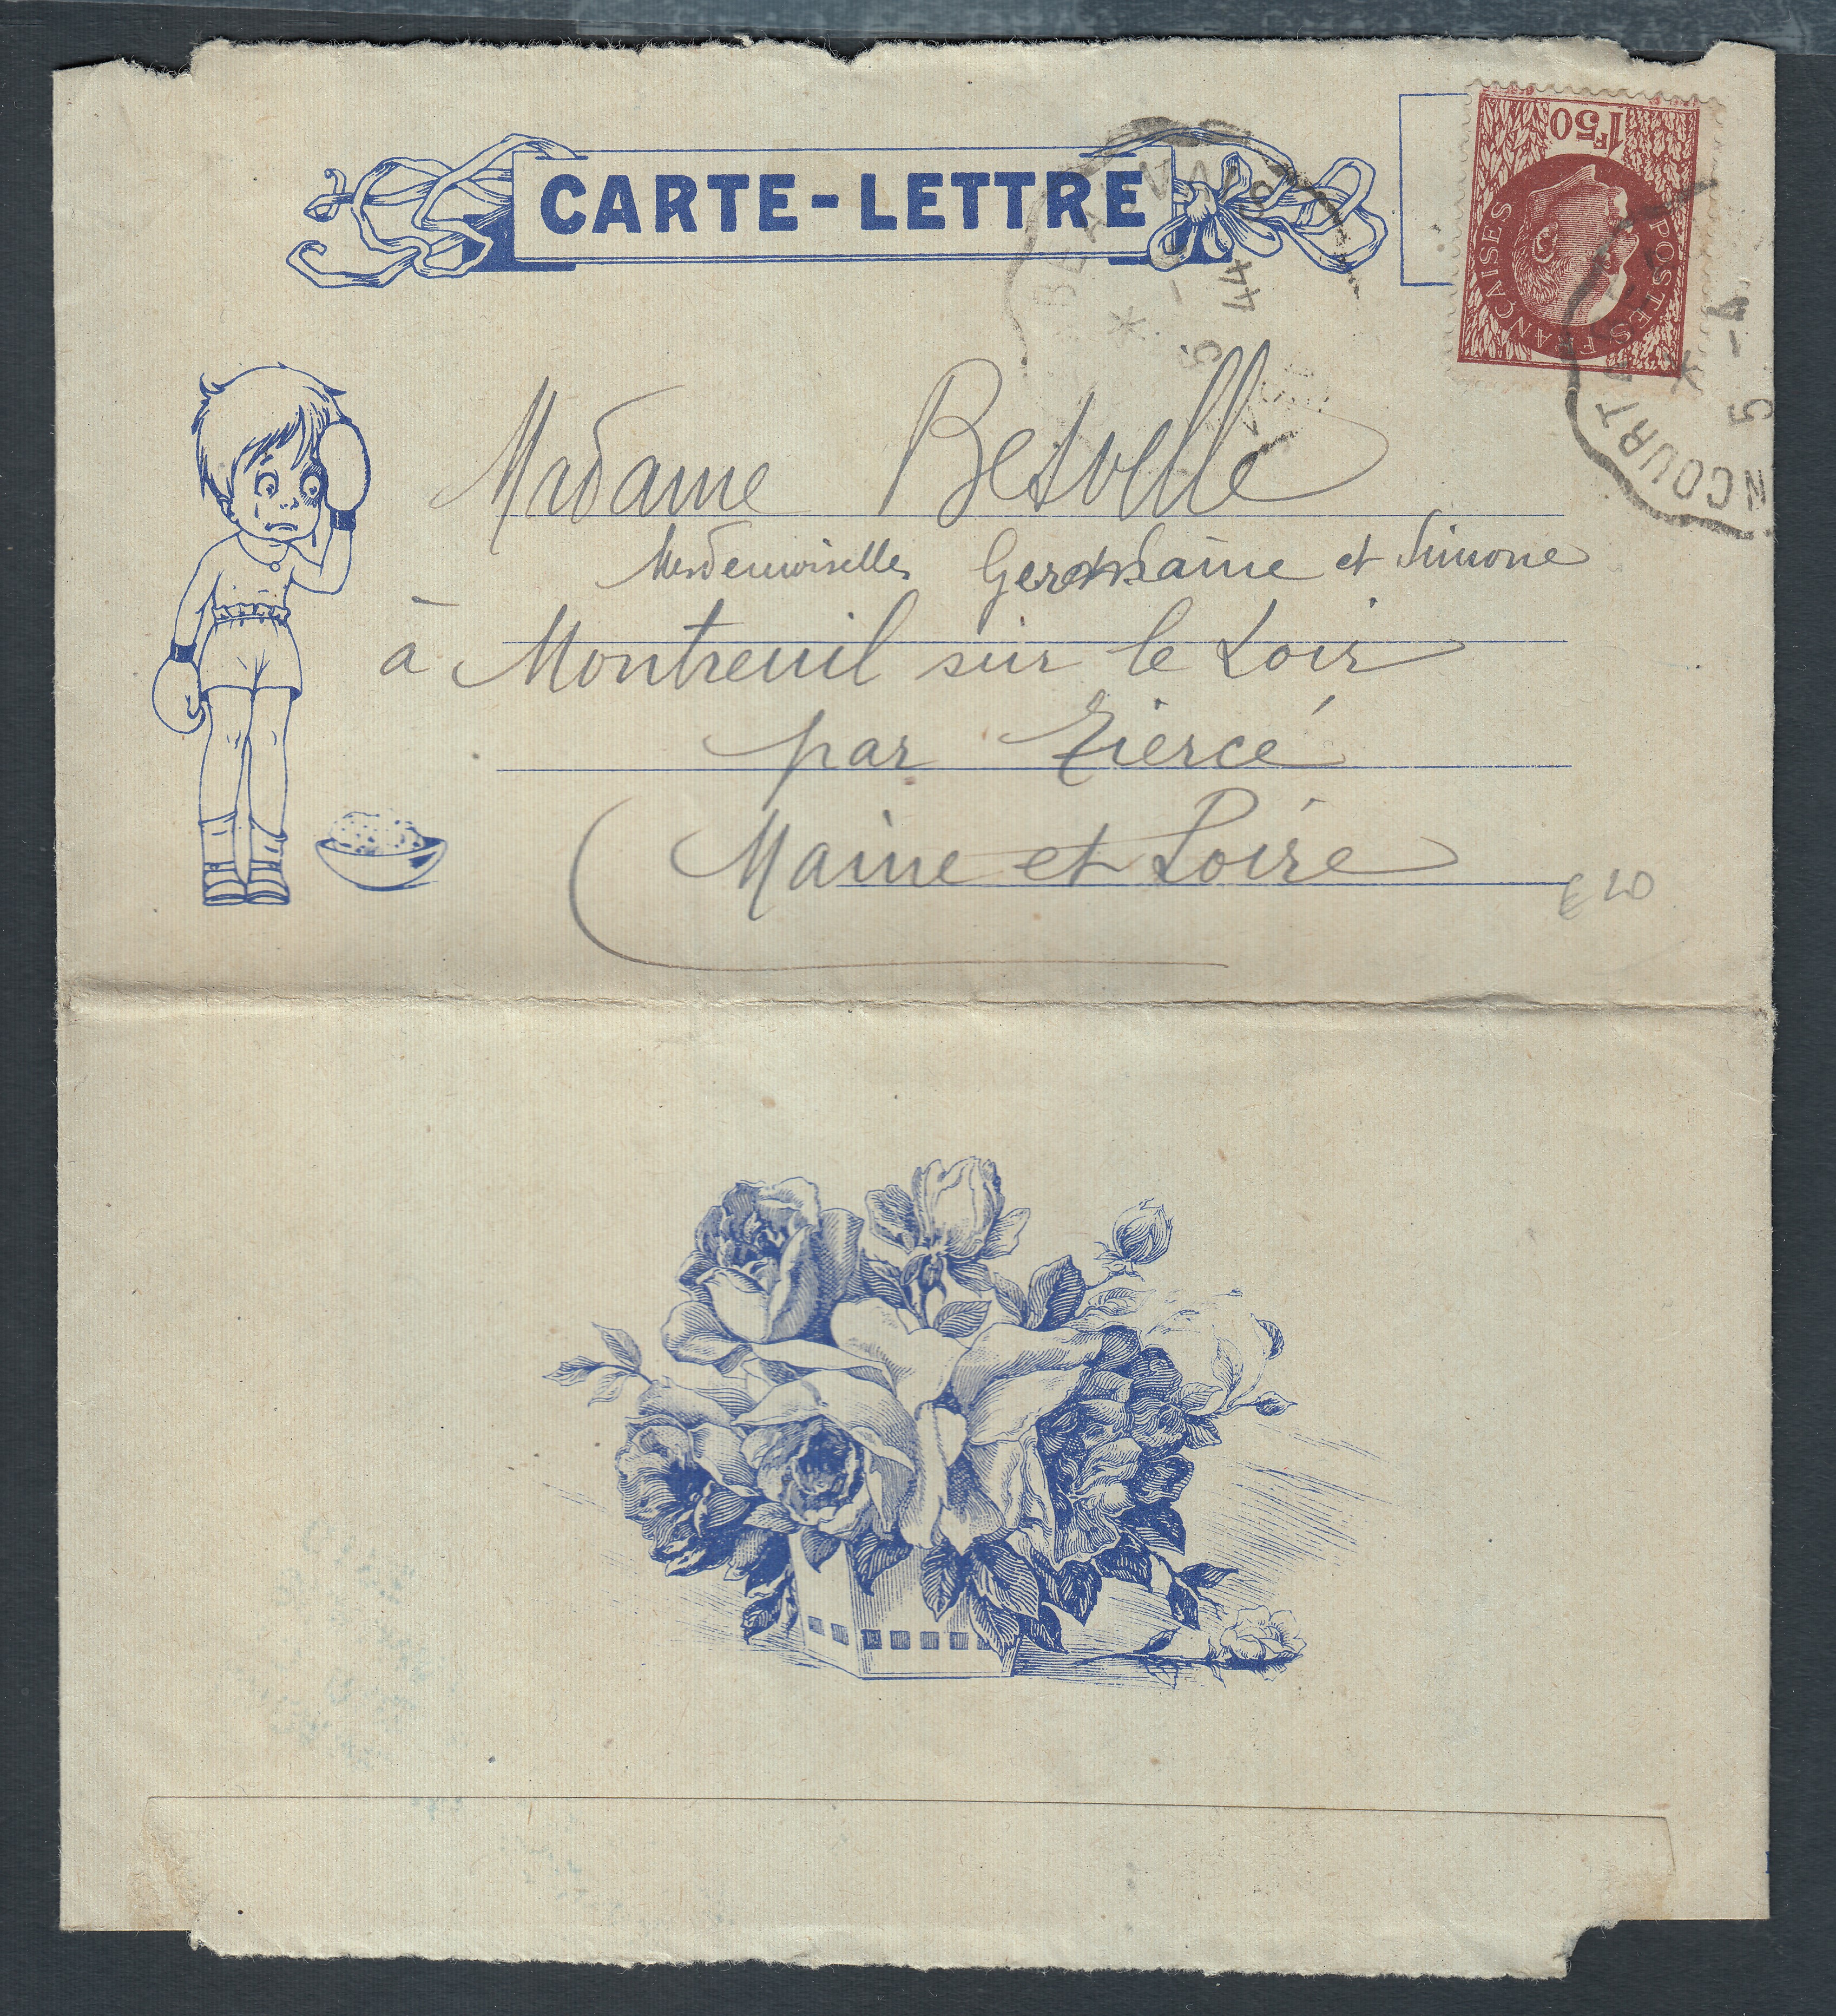 CARTE-LETTRE
1F50
POSTES FRANÇAISES
BEAUVAIS
* 5 - 4 44
NCOURT
* 5 - 4
Madame
Mesdemoiselles Germaine et Simone
à Montreuil sur le Loir
par Tiercé
Maine et Loire
€20